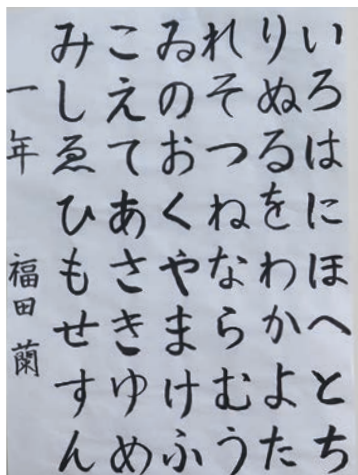 いろはにほへとち
りぬるをわかよた
れそつねならむう
ゐのおくやまけふ
こえてあさきゆめ
みしゑひもせすん
一年 福田蘭